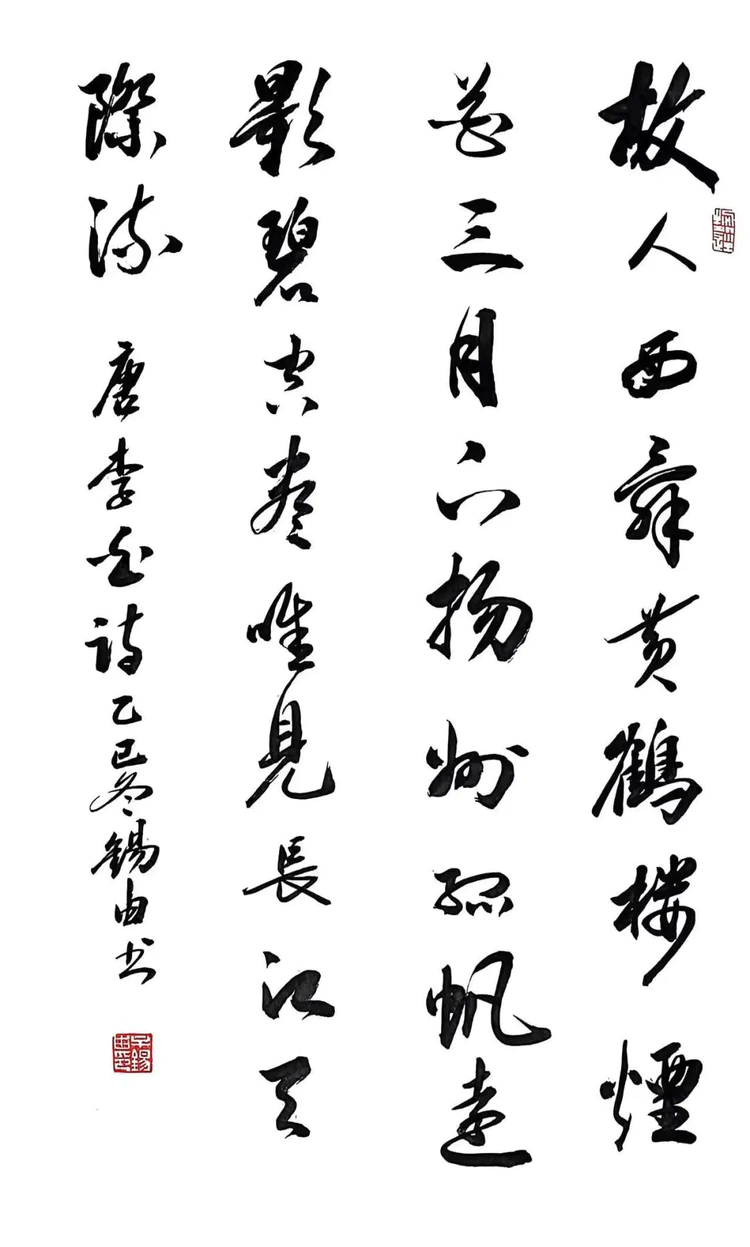 故人西辞黄鹤楼煙
花三月下扬州孤帆遠
影碧空尽唯見長江天
際流 唐李白诗乙巳冬錫由书